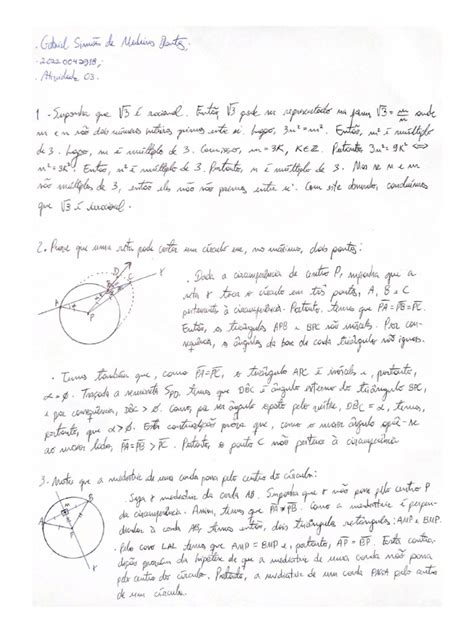 . Gabriel Simões de Medeiros Dantas.
. 20220042918.
. Atividade 03.
1 - Suponha que √3 é racional. Então √3 pode ser representado na forma √3 = m/n onde
m e n são dois números inteiros primos entre si. Logo, 3n² = m². Então, m² é múltiplo
de 3. Logo, m é múltiplo de 3. Com isso, m = 3K, K∈Z. Portanto 3n² = 9K² ⟺
n² = 3K². Então, n² é múltiplo de 3. Portanto, n é múltiplo de 3. Mas se n e m
são múltiplos de 3, então eles não são primos entre si. Com este absurdo, concluímos
que √3 é irracional.
2. Prove que uma reta pode cortar um círculo em, no máximo, dois pontos:
. Dada a circunferência de centro P, suponha que a
reta r toca o círculo em três pontos, A, B e C
pertencente à circunferência. Portanto, temos que PA = PB = PC.
Então, os triângulos APB e BPC são isósceles. Por con-
sequência, os ângulos da base de cada triângulo são iguais.
. Temos também que, como PA = PC, o triângulo APC é isósceles e, portanto,
α = ø. Traçada a semirreta S, temos que DBC é ângulo externo do triângulo BPC,
e por consequência, DBC > ø. Como, por ser ângulo oposto pelo vértice, DBC = α, temos,
portanto, que α > ø. Esta contradição prova que, como o maior ângulo opõe-se
ao maior lado, PA = PB > PC. Portanto, o ponto C não pertence à circunferência.
3. Mostre que a mediatriz de uma corda passa pelo centro do círculo:
. Seja r mediatriz da corda AB. Suponha que r não passa pelo centro P
da circunferência. Assim, temos que PA ≠ PB. Como a mediatriz é perpen-
dicular à corda AB, temos então, dois triângulos retângulos: AMP e BMP.
. Pelo caso LAL temos que AMP = BMP e, portanto, AP = BP. Esta contra-
dição provém da hipótese de que a mediatriz de uma corda não passa
pelo centro do círculo. Portanto, a mediatriz de uma corda PASSA pelo centro
de um círculo.